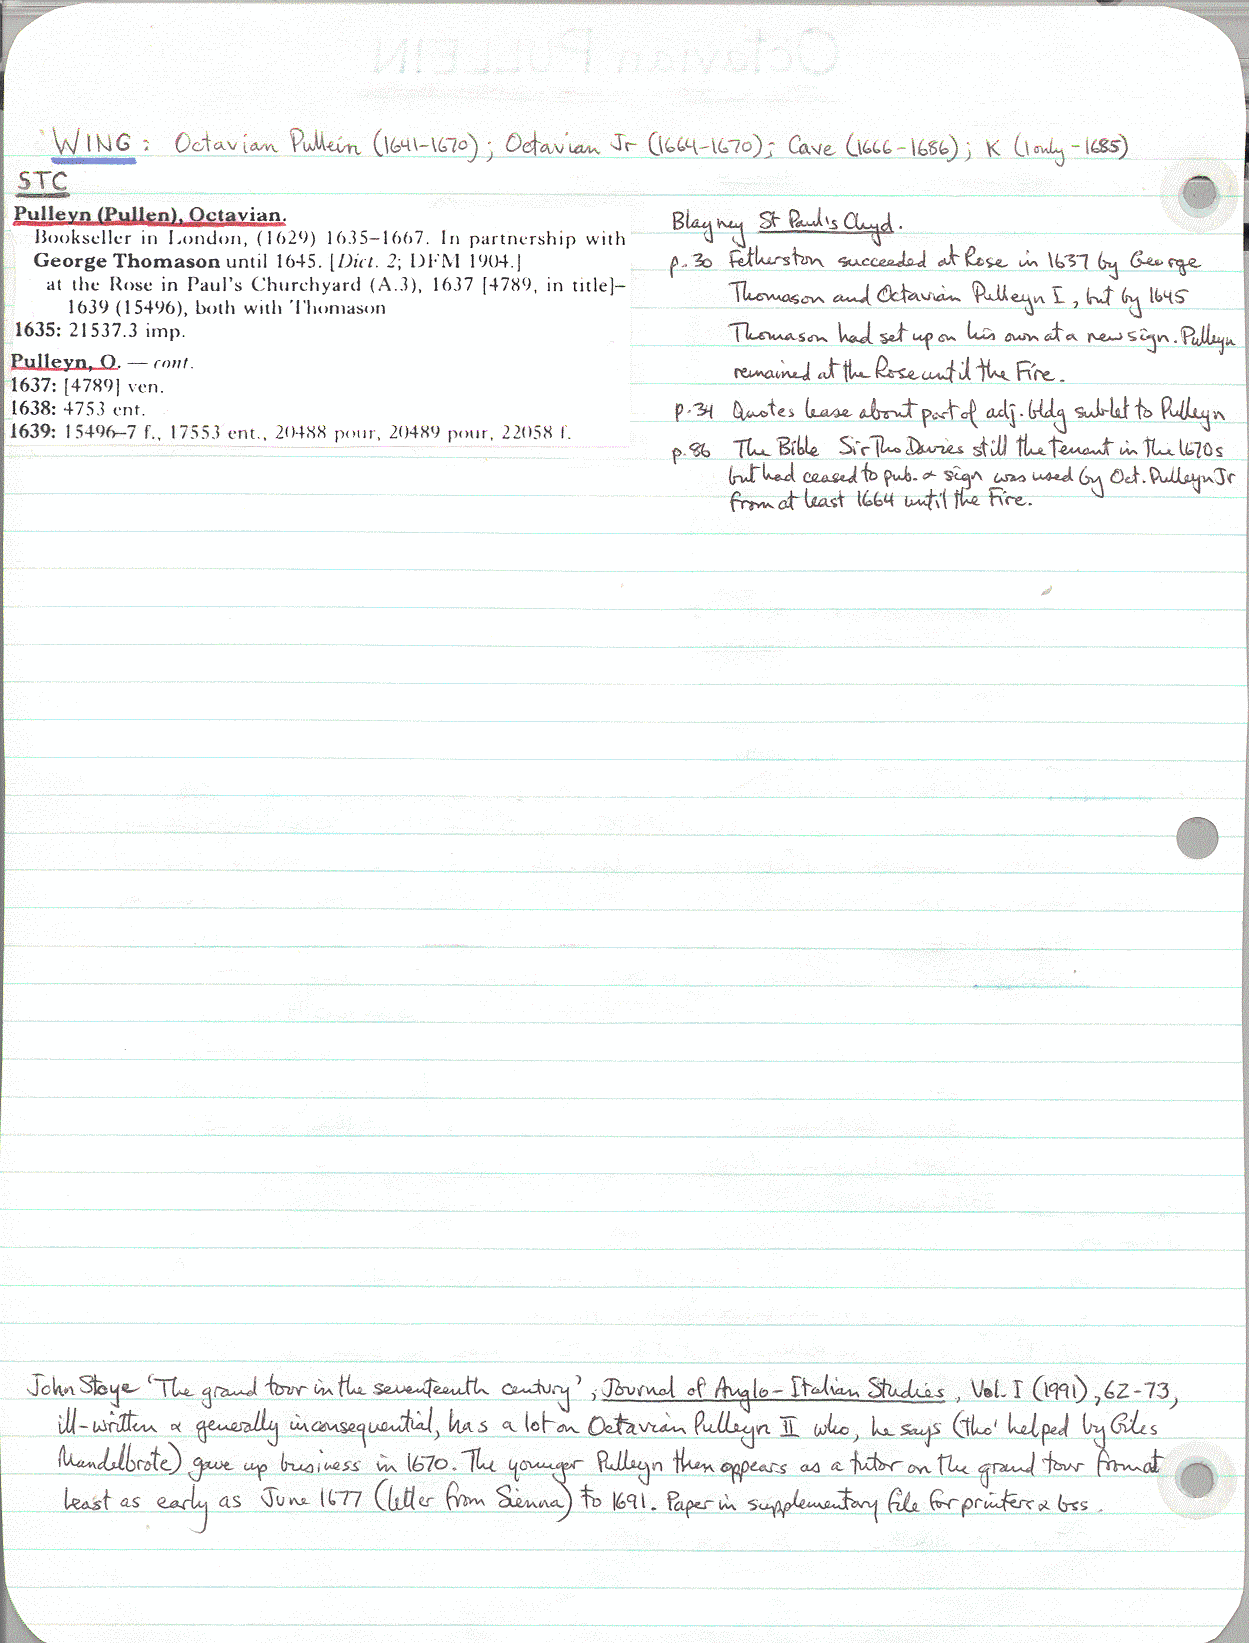 Octavian PULLEIN
WING: Octavian Pullein (1641-1670); Octavian Jr (1664-1670); Cave (1666-1686); K (1 only - 1685)
STC
Pulleyn (Pullen), Octavian.
Bookseller in London, (1629) 1635–1667. In partnership with
George Thomason until 1645. [Dict. 2; DFM 1904.]
at the Rose in Paul's Churchyard (A.3), 1637 [4789, in title]–
1639 (15496), both with Thomason
1635: 21537.3 imp.
Pulleyn, O. — cont.
1637: [4789] ven.
1638: 4753 ent.
1639: 15496–7 f., 17553 ent., 20488 pour, 20489 pour, 22058 f.
Blayney St Paul's Chyd.
p. 30 Fetherston succeeded at Rose in 1637 by George
Thomason and Octavian Pulleyn I, but by 1645
Thomason had set up on his own at a new sign. Pulleyn
remained at the Rose until the Fire.
p. 34 Quotes lease about part of adj. bldg sublet to Pulleyn
p. 86 The Bible Sir Tho Davies still the tenant in the 1670s
but had ceased to pub. & sign was used by Oct. Pulleyn Jr
from at least 1664 until the Fire.
John Stoye 'The grand tour in the seventeenth century', Journal of Anglo-Italian Studies, Vol. I (1991), 62-73,
ill-written & generally inconsequential, has a lot on Octavian Pulleyn II who, he says (tho' helped by Giles
Mandelbrote) gave up business in 1670. The younger Pulleyn then appears as a tutor on the grand tour from at
least as early as June 1677 (letter from Sienna) to 1691. Paper in supplementary file for printers & bss.